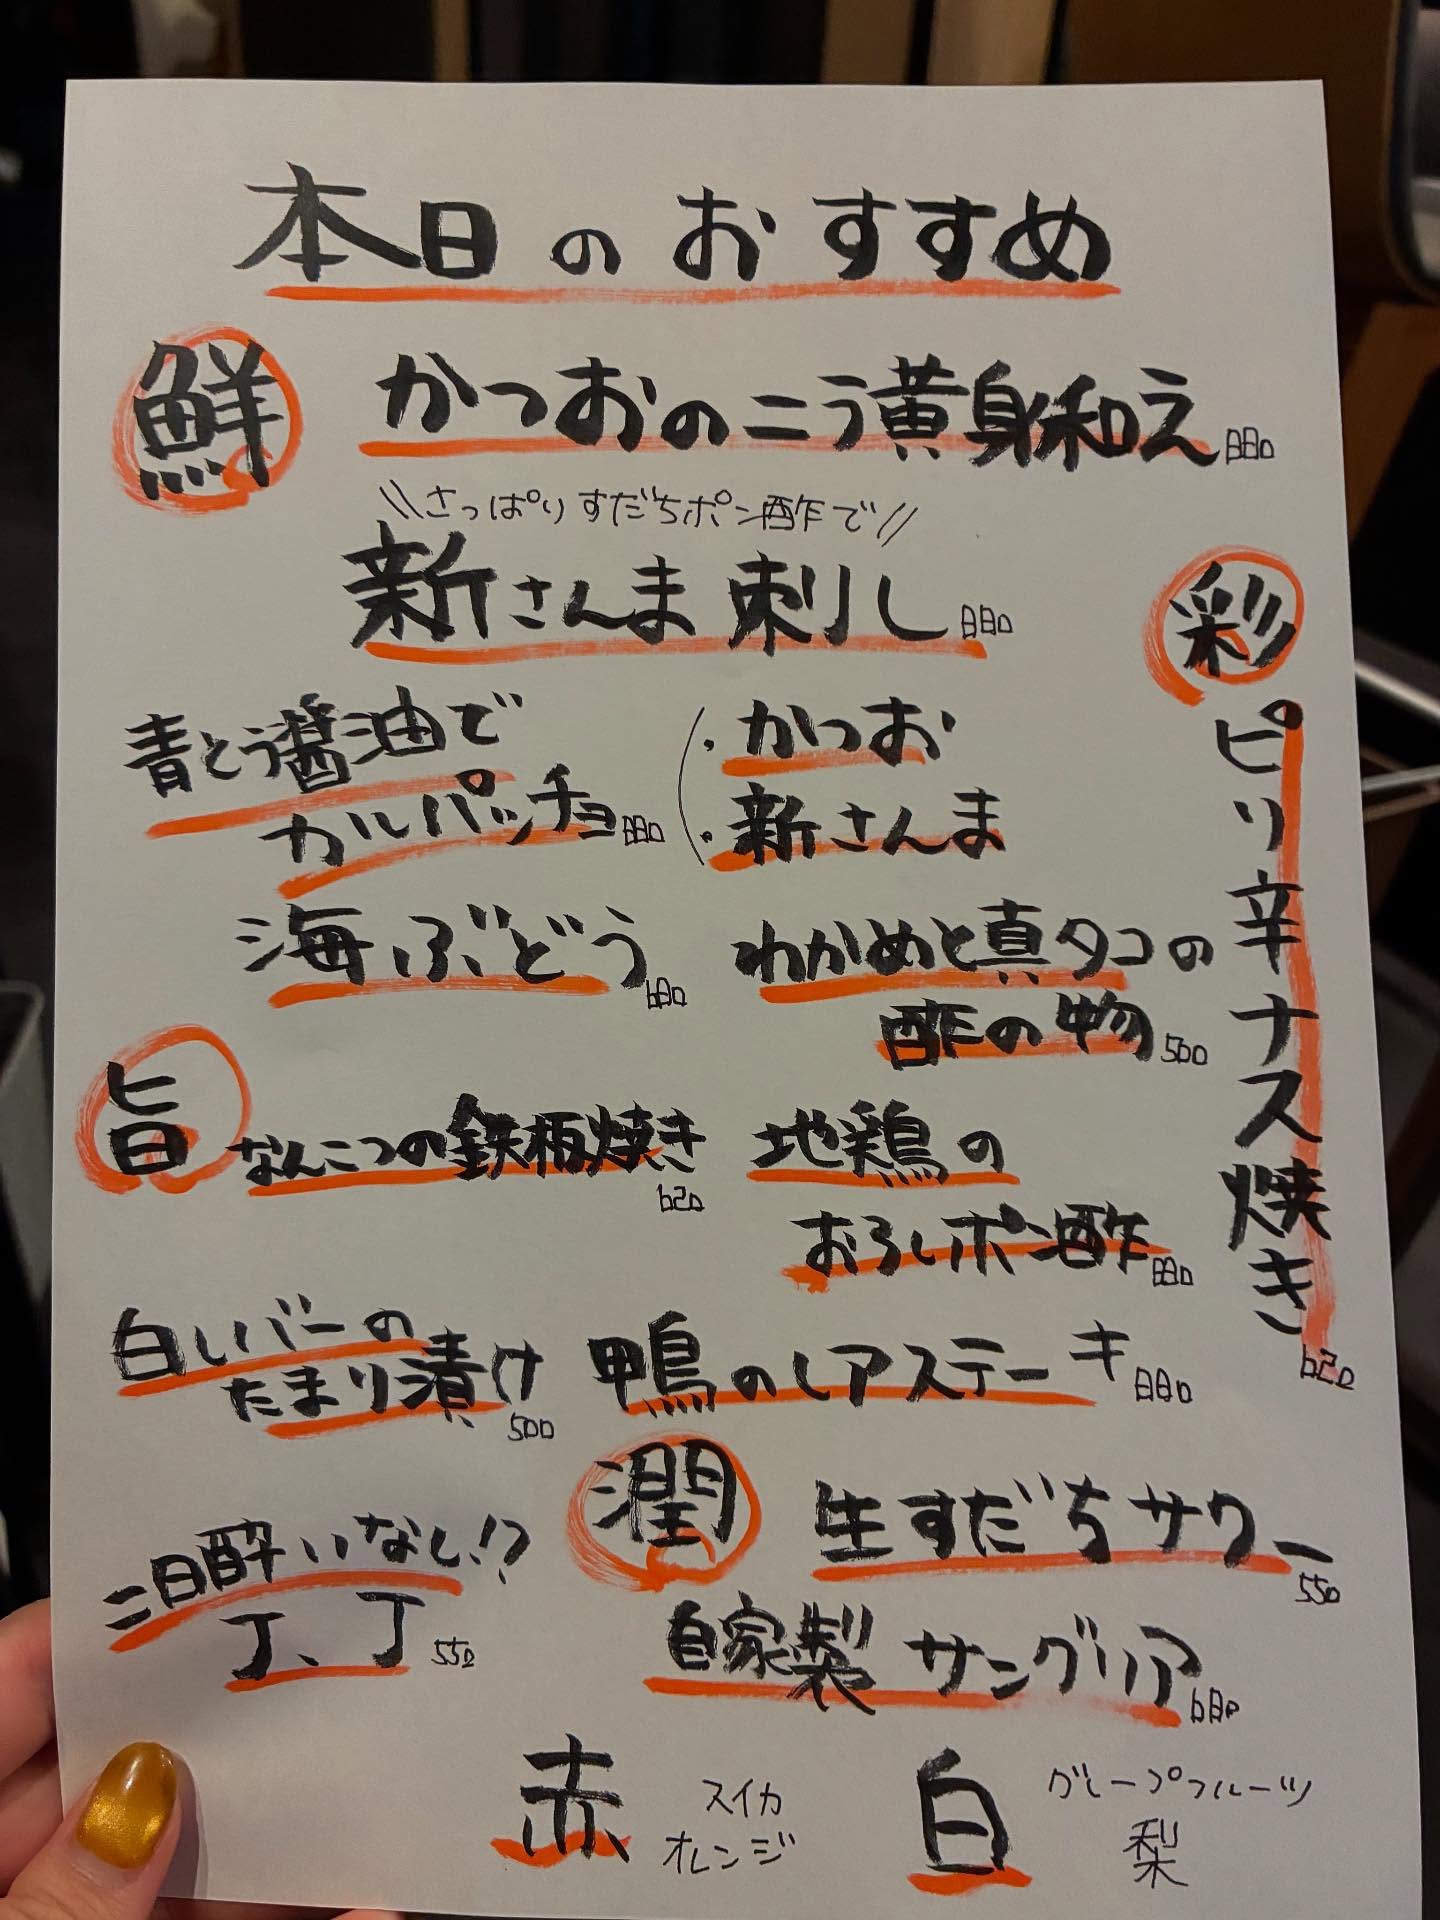 本日のおすすめ
鮮
かつおのこう黄身和え 880
\\さっぱりすだちポン酢で//
新さんま刺し 880
青とう醤油で
カルパッチョ 880
・かつお
・新さんま
海ぶどう 680
わかめと真タコの
酢の物 500
彩
ピリ辛ナス焼き 620
旨
なんこつの鉄板焼き 620
地鶏の
おろしポン酢 880
白レバーの
たまり漬け 500
鴨のレアステーキ 880
潤
生すだちサワー 550
二日酔いなし!?
丁、丁 550
自家製サングリア 680
赤
スイカ
オレンジ
白
グレープフルーツ
梨